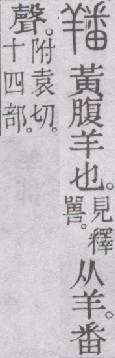 羳黃腹羊也。見釋嘼。从羊。番
聲。附袁切。十四部。